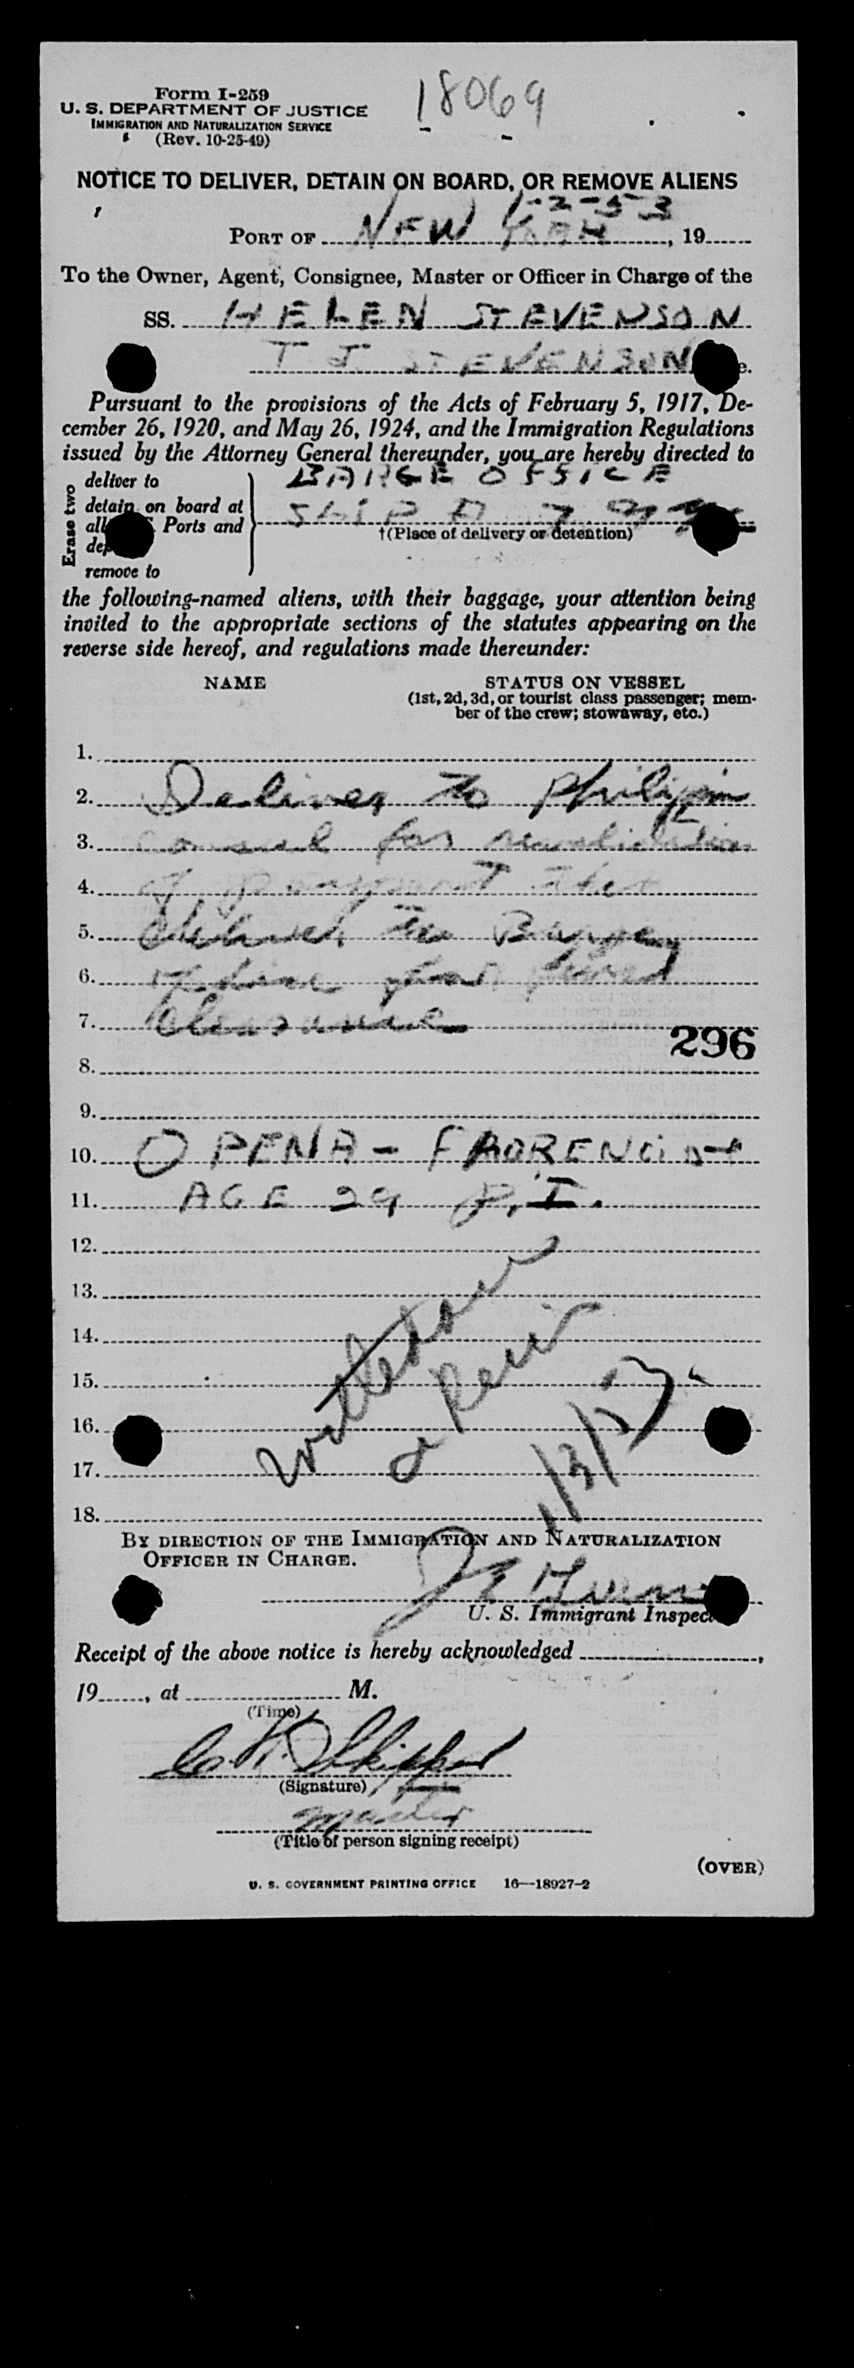 18069
Form I-259
U. S. DEPARTMENT OF JUSTICE
IMMIGRATION AND NATURALIZATION SERVICE
(Rev. 10-25-49)
NOTICE TO DELIVER, DETAIN ON BOARD, OR REMOVE ALIENS
1-2-53
PORT OF NEW YORK, 19
To the Owner, Agent, Consignee, Master or Officer in Charge of the
SS. HELEN STEVENSON
T J STEVENSON e.
Pursuant to the provisions of the Acts of February 5, 1917, De-
cember 26, 1920, and May 26, 1924, and the Immigration Regulations
issued by the Attorney General thereunder, you are hereby directed to
Erase two
deliver to BARGE OFFICE
detain on board at
all Ports and
†(Place of delivery or detention)
remove to
the following-named aliens, with their baggage, your attention being
invited to the appropriate sections of the statutes appearing on the
reverse side hereof, and regulations made thereunder:
NAME STATUS ON VESSEL
(1st, 2d, 3d, or tourist class passenger; mem-
ber of the crew; stowaway, etc.)
1.
2. Deliver to Philippin
3. consul for revalidation
4. of passport then
5. deliver to Barge
6. office for final
7. Clearance
296
8.
9.
10. OPENA - FLORENCIO
11. AGE 29 P.I.
12.
13.
14.
15.
16.
17.
18.
1/3/53
BY DIRECTION OF THE IMMIGRATION AND NATURALIZATION
OFFICER IN CHARGE.
U. S. Immigrant Inspec
Receipt of the above notice is hereby acknowledged ,
19, at M.
(Time)
Skipper
(Signature)
Master
(Title of person signing receipt)
(OVER)
U. S. GOVERNMENT PRINTING OFFICE 16—18927-2